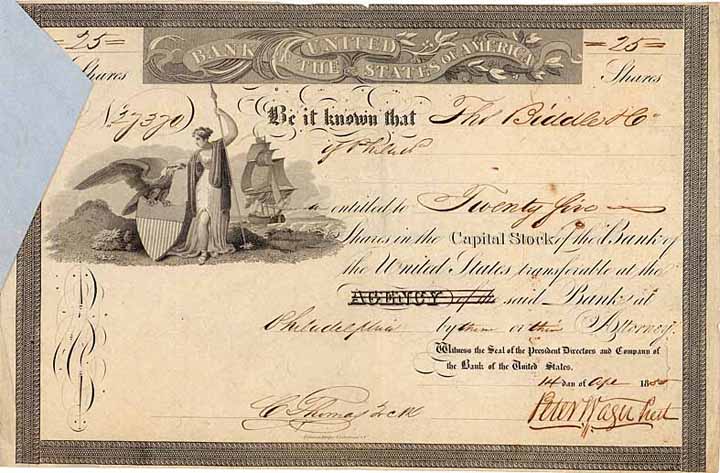 25
Shares
BANK OF THE UNITED STATES OF AMERICA
25
Shares
Be it known that Tho Biddle & Co
of Philad
entitled to Twenty five
Shares in the Capital Stock of the Bank of
the United States, transferable at the
AGENCY of the said Bank at
Philadelphia by them or their Attorney.
Witness the Seal of the President Directors and Company of
the Bank of the United States.
14 day of Apr 18